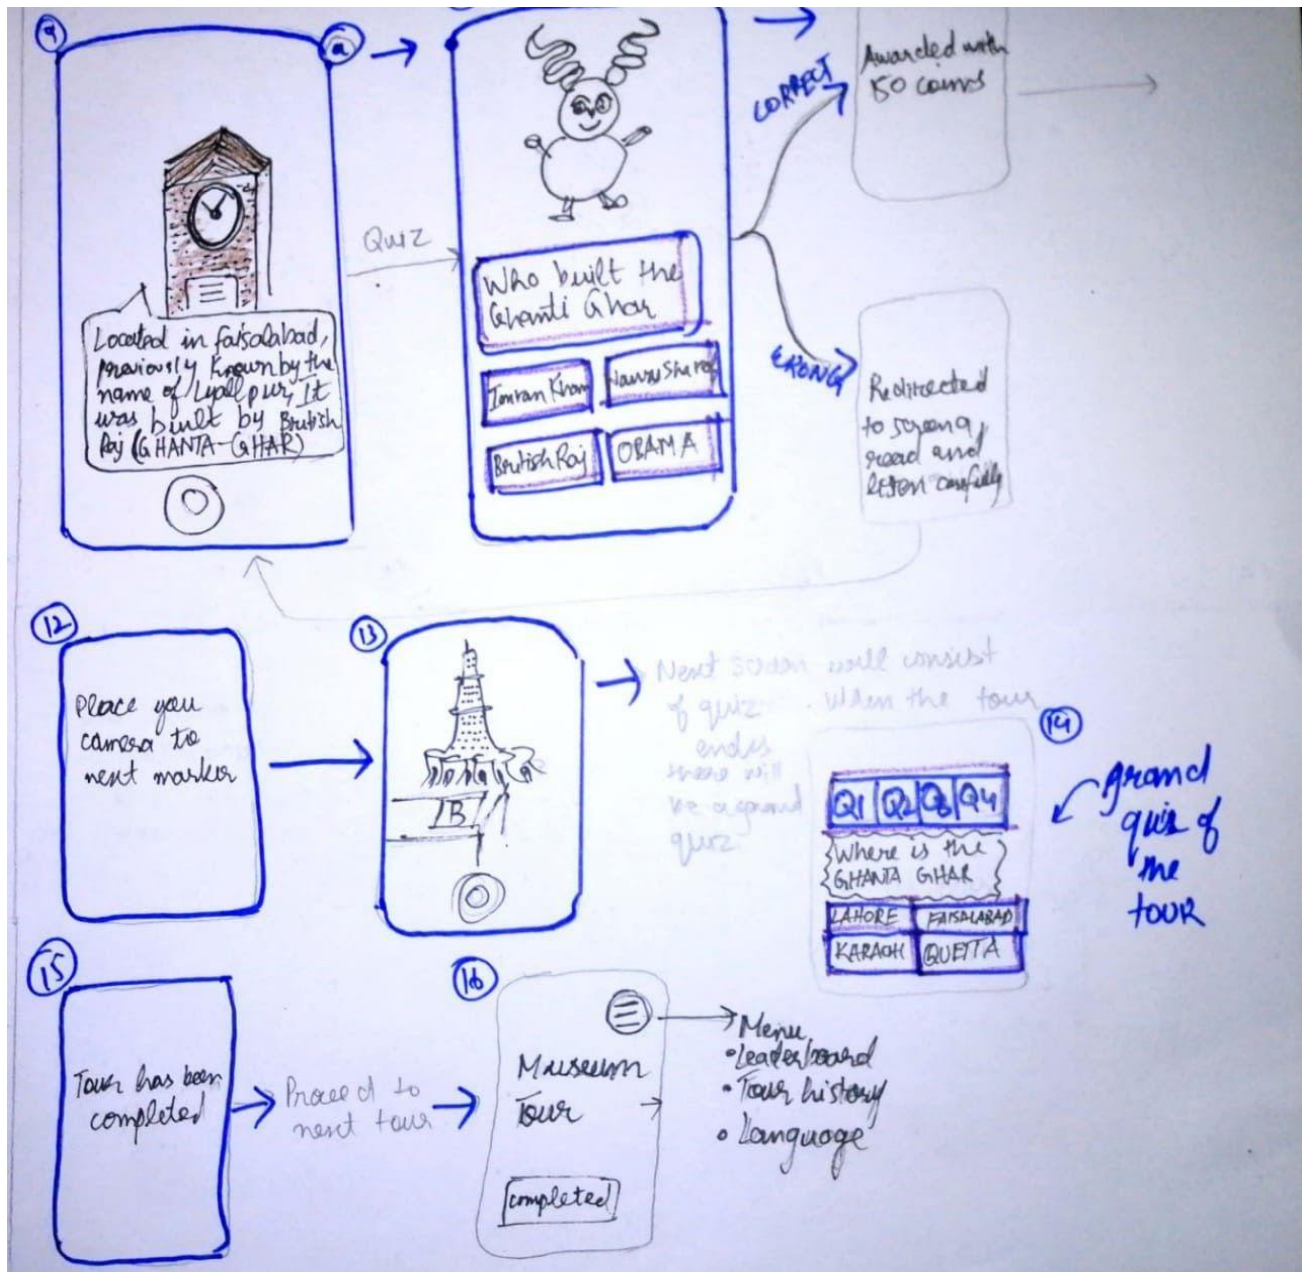 9
a
Located in faisalabad,
previously known by the
name of Lyallpur, It
was built by British
Raj (GHANTA-GHAR)
Quiz
Who built the
Ghanti Ghar
Imran Khan
British Raj
OBAMA
CORRECT
Awarded with
50 coins
WRONG
Redirected
to screen 9,
read and
listen carefully
12
Place you
camera to
next marker
13
B
Next screen will consist
of quiz . When the tour
ends
there will
be a grand
quiz
14
Q1 Q2 Q3 Q4
Where is the
GHANTA GHAR
LAHORE FAISALABAD
KARACHI QUETTA
grand
quiz of
the
tour
15
Tour has been
completed
Proceed to
next tour
16
Museum
Tour
completed
Menu
• Leaderboard
• Tour history
• Language